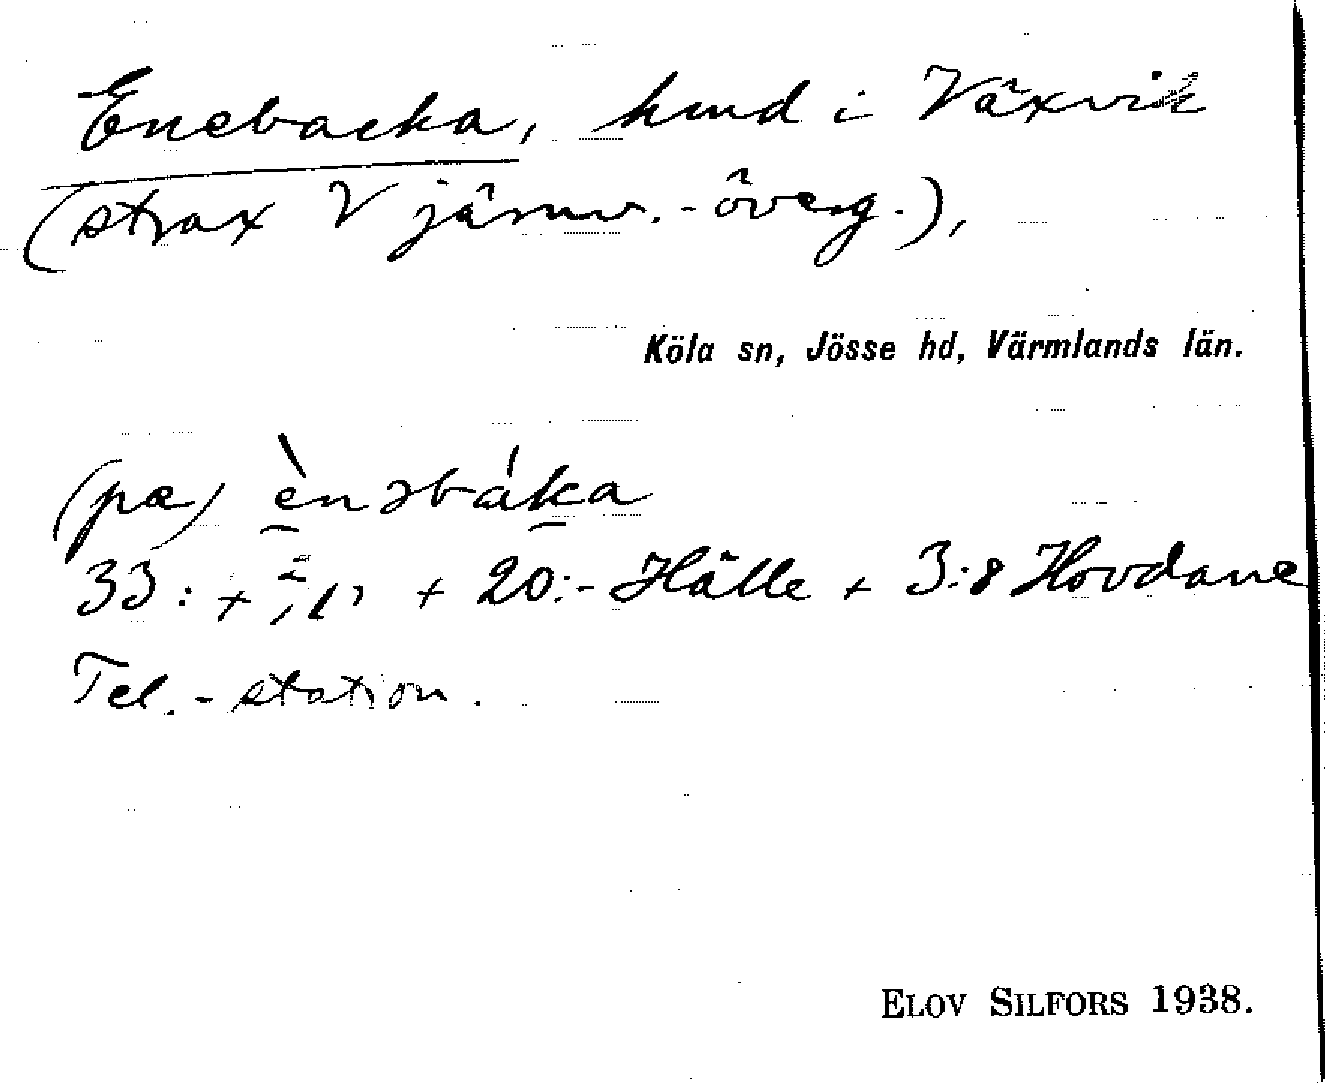 Enebacka, hmd i Växvik
(strax V järnv.-överg.),
Köla sn, Jösse hd, Värmlands län.
(pæ) ènəbáka
33: + + 20:- Hälle + 3:8 Hovdane
Tel.-station.
ELOV SILFORS 1938.